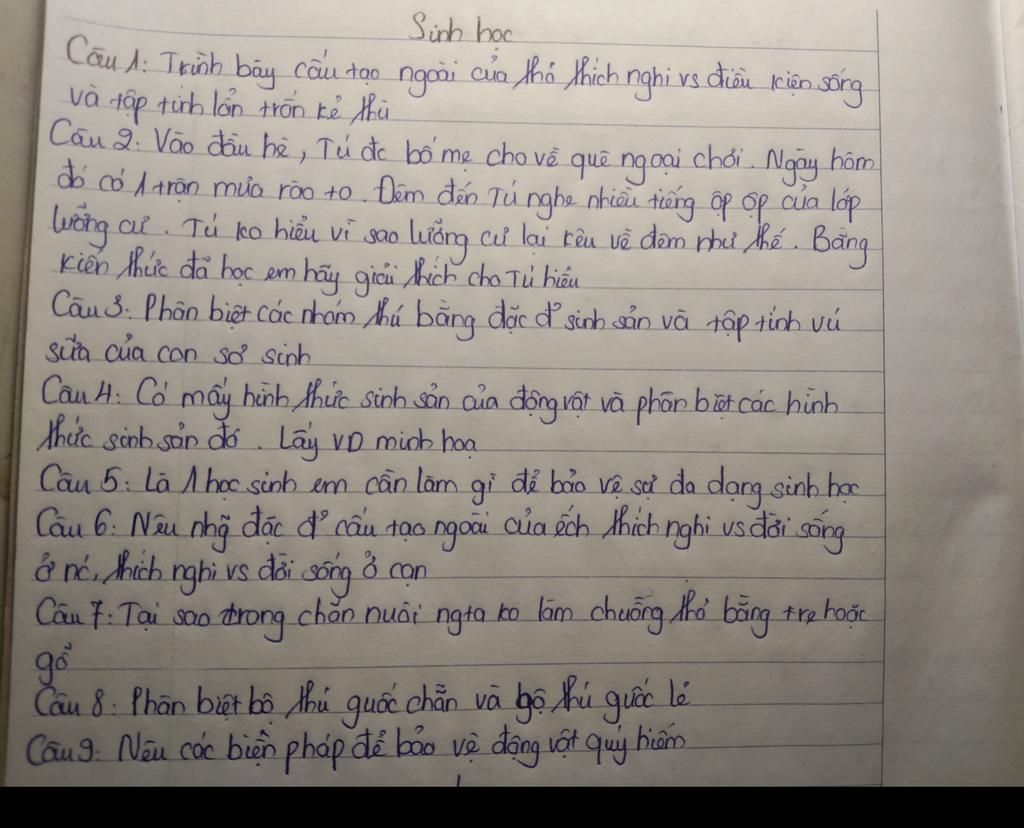 Sinh học
Câu 1: Trình bày cấu tạo ngoài của thỏ thích nghi vs điều kiện sống
và tập tính lẩn trốn kẻ thù
Câu 2: Vào đầu hè, Tú đc bố mẹ cho về quê ngoại chơi. Ngày hôm
đó có 1 trận mưa rào to. Đêm đến Tú nghe nhiều tiếng ộp ộp của lớp
lưỡng cư. Tú ko hiểu vì sao lưỡng cư lại kêu về đêm như thế. Bằng
kiến thức đã học em hãy giải thích cho Tú hiểu
Câu 3: Phân biệt các nhóm thú bằng đặc đ² sinh sản và tập tính vú
sữa của con sơ sinh
Câu 4: Có mấy hình thức sinh sản của động vật và phân biệt các hình
thức sinh sản đó. Lấy VD minh hoạ
Câu 5: Là 1 học sinh em cần làm gì để bảo vệ sự đa dạng sinh học
Câu 6: Nêu nhg̃ đặc đ² cấu tạo ngoài của ếch thích nghi vs đời sống
ở nc, thích nghi vs đời sống ở cạn
Câu 7: Tại sao trong chăn nuôi ngta ko làm chuồng thỏ bằng tre hoặc
gỗ
Câu 8: Phân biệt bộ thú guốc chẵn và bộ thú guốc lẻ
Câu 9: Nêu các biện pháp để bảo vệ động vật quý hiếm